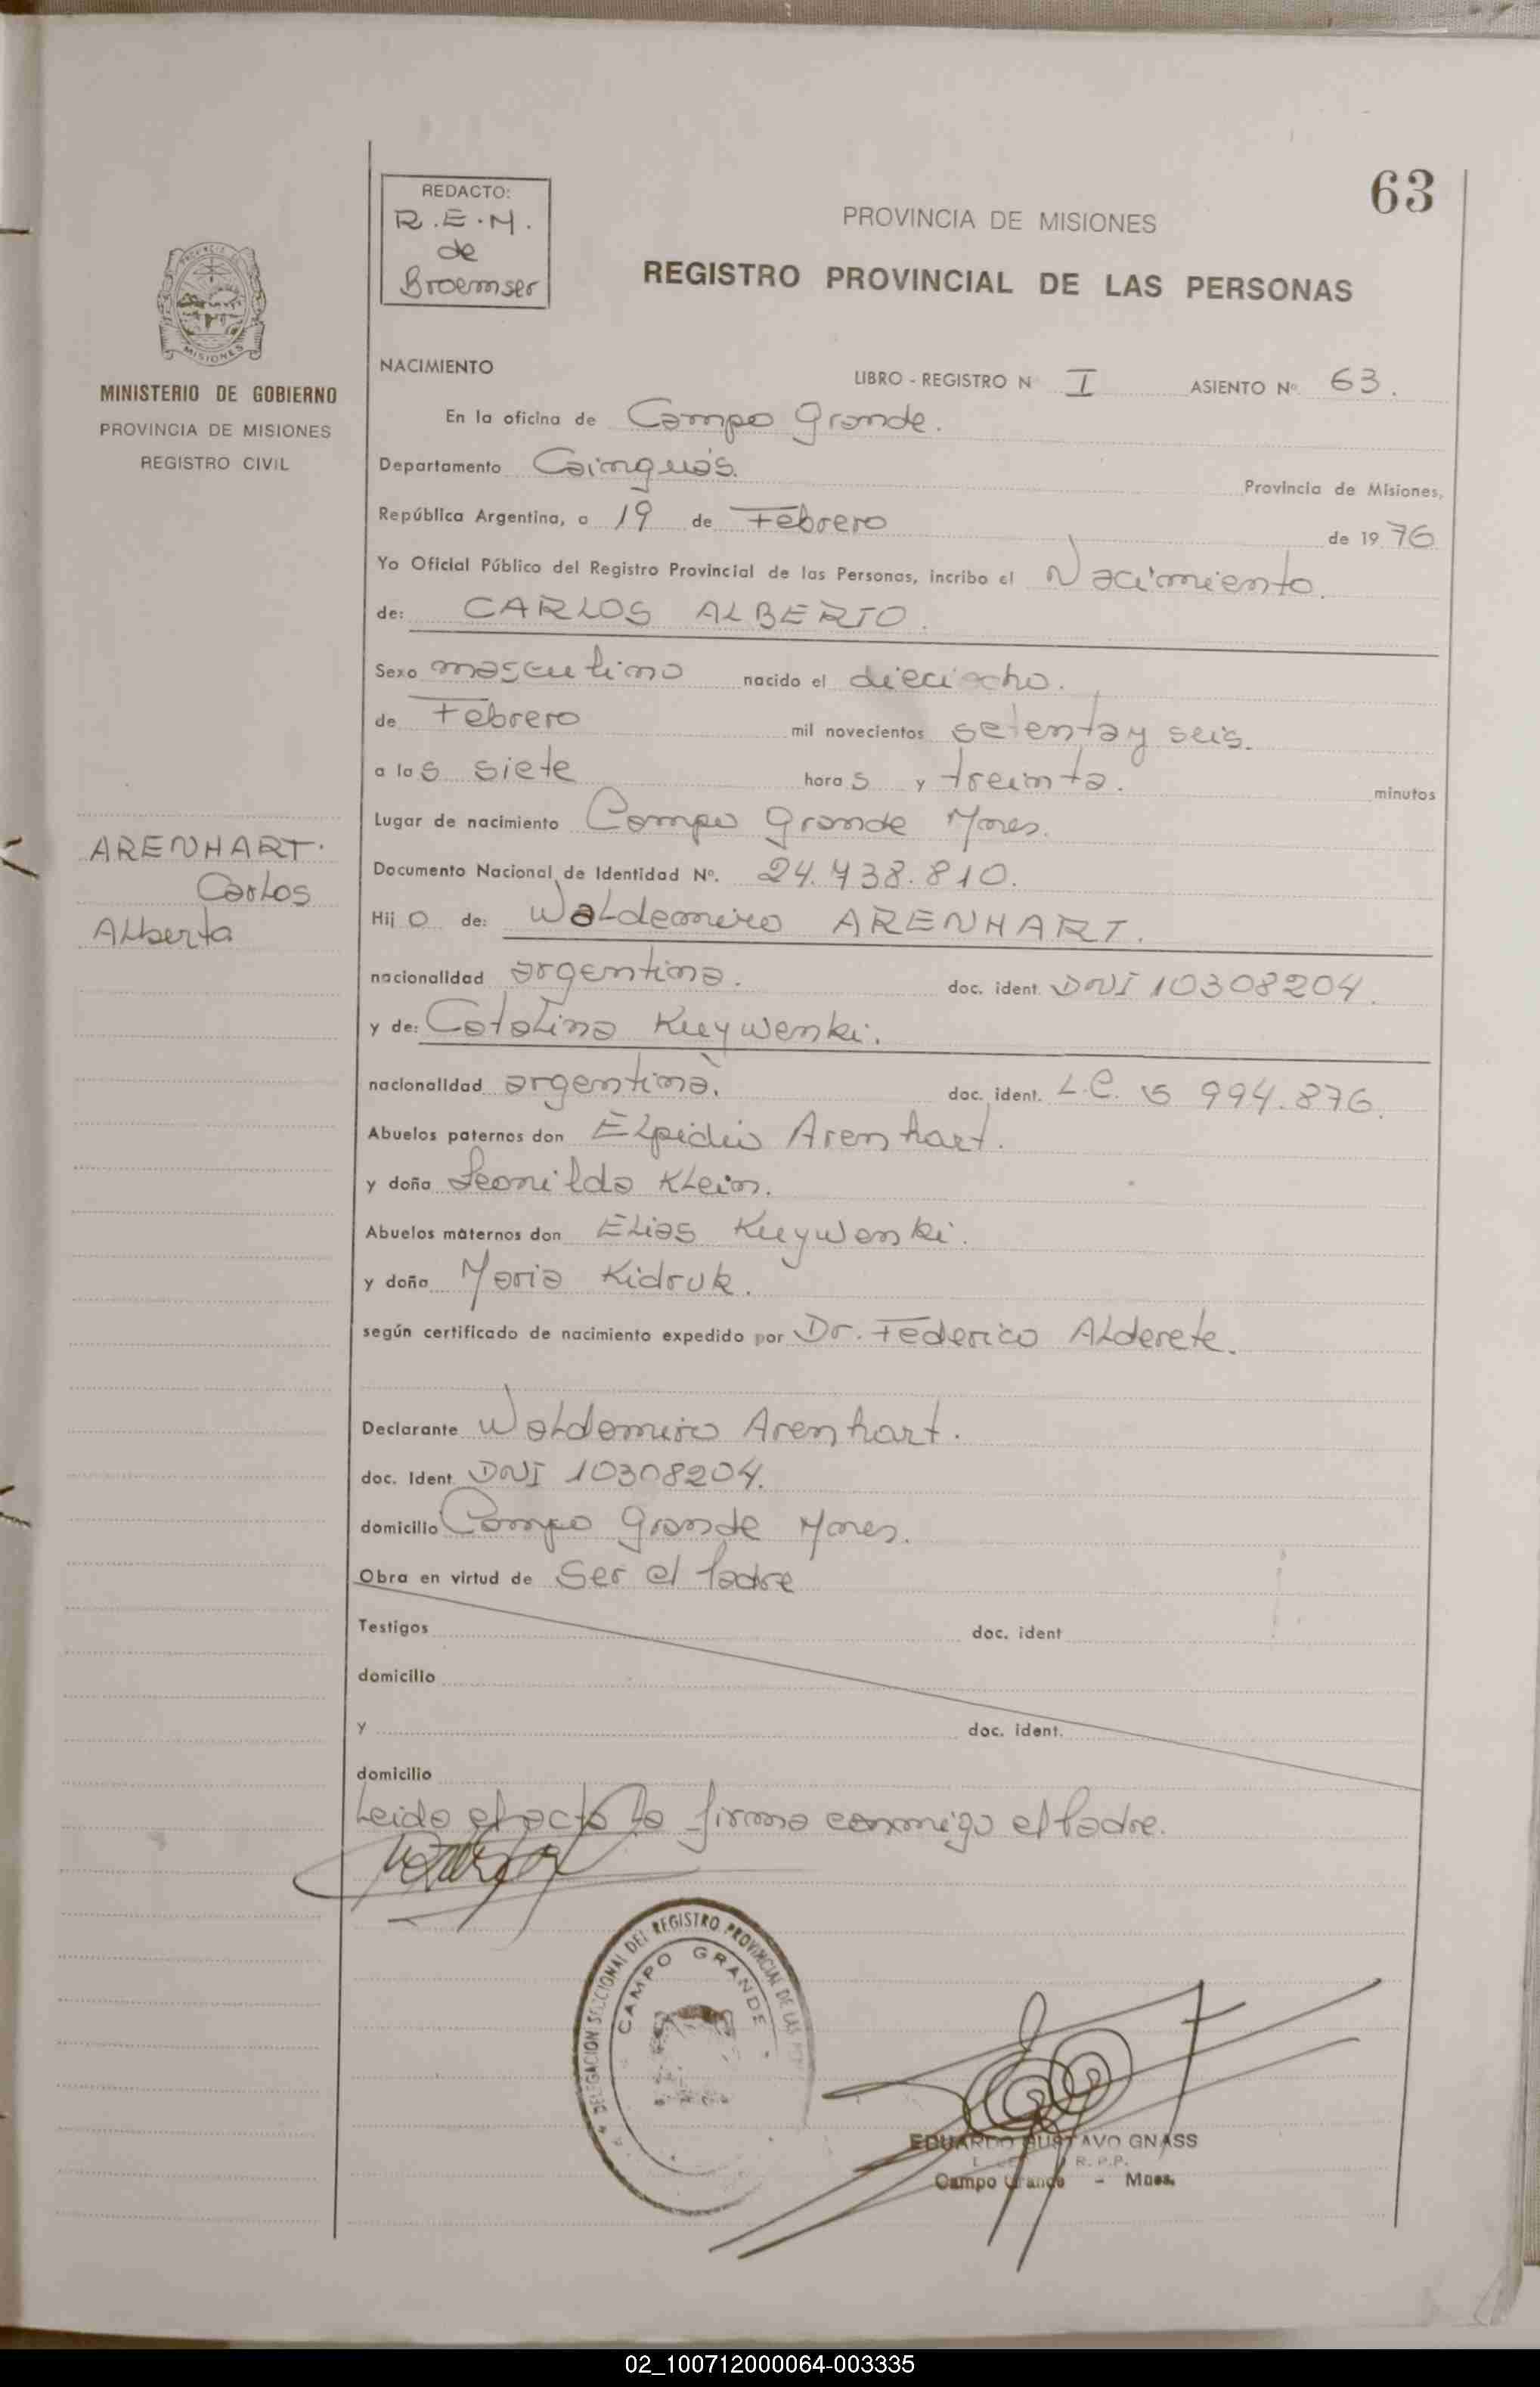 63
REDACTO:
R.E.M.
de
Broemser
PROVINCIA DE MISIONES
REGISTRO PROVINCIAL DE LAS PERSONAS
MISIONES
MINISTERIO DE GOBIERNO
PROVINCIA DE MISIONES
REGISTRO CIVIL
NACIMIENTO
LIBRO - REGISTRO N I ASIENTO Nº. 63.
En la oficina de Campo Grande.
Departamento Cainguás.
Provincia de Misiones,
República Argentina, a 19 de Febrero de 19 76
Yo Oficial Público del Registro Provincial de las Personas, incribo el Nacimiento.
de: CARLOS ALBERTO.
Sexo masculino nacido el dieciocho.
de Febrero mil novecientos setenta y seis.
a las siete horas y treinta. minutos
Lugar de nacimiento Campo Grande Mnes.
ARENHART.
Carlos
Alberto
Documento Nacional de Identidad Nº. 24.738.810.
Hijo de: Waldemiro ARENHART.
nacionalidad argentina. doc. ident. DNI 10308204.
y de: Catalina Kuywenki.
nacionalidad argentina. doc. ident. L.C. 5 994.876.
Abuelos paternos don Elpidio Arenhart.
y doña Leonilda Klein.
Abuelos maternos don Elias Kuywenki.
y doña Maria Kidruk.
según certificado de nacimiento expedido por Dr. Federico Alderete.
Declarante Waldomiro Arenhart.
doc. Ident. DNI 10308204.
domicilio Campo Grande Mnes.
Obra en virtud de ser el Padre
Testigos doc. ident
domicilio
y doc. ident.
domicilio
Leida el acta la firma conmigo el Padre.
DELEGACION SECCIONAL DEL REGISTRO PROVINCIAL DE LAS
CAMPO GRANDE
EDUARDO GUSTAVO GNASS
R.P.P.
Campo Grande - Mnes.
02_100712000064-003335